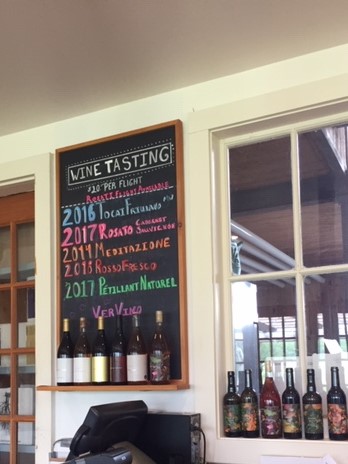 WINE TASTING
$20 PER FLIGHT
ROSATI FLIGHT AVAILABLE
2016 TOCAI FRIULANO
2017 ROSATO CABERNET SAUVIGNON
2014 MEDITAZIONE
2015 ROSSO FRESCO
2017 PÉTILLANT NATUREL
VERVINO